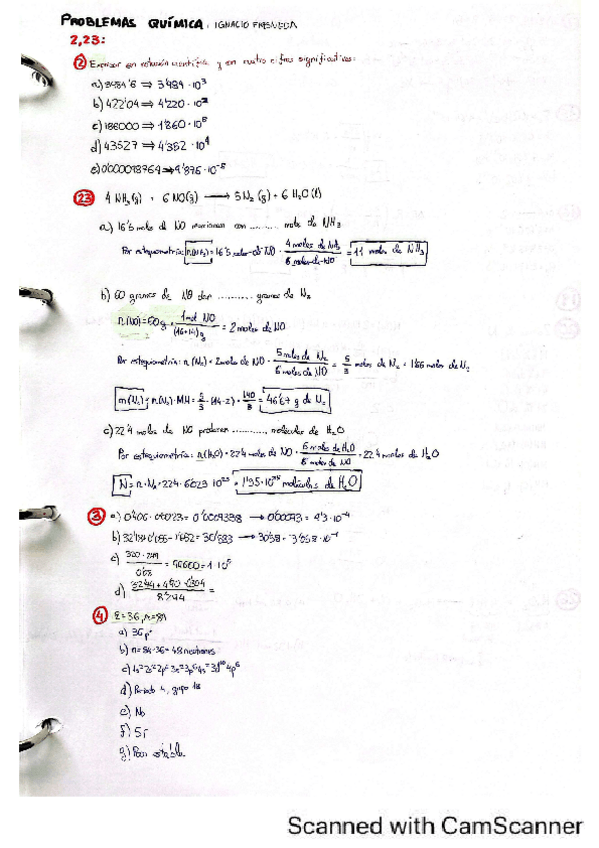 PROBLEMAS QUÍMICA. IGNACIO FRESNEDA
2,23:
② Expresar en notación científica y en cuatro cifras significativas:
a) 3484'6 ⇒ 3'484 · 10³
b) 422'04 ⇒ 4'220 · 10²
c) 186000 ⇒ 1'860 · 10⁵
d) 43527 ⇒ 4'352 · 10⁴
e) 0'000098764 ⇒ 9'876 · 10⁻⁵
㉓ 4 NH₃(g) + 6 NO(g) ⟶ 5 N₂ (g) + 6 H₂O (l)
a) 16'5 moles de NO reaccionan con .......... moles de NH₃
Por estequiometría: n(NH₃) = 16'5 moles de NO · 4 moles de NH₃ / 6 moles de NO = 11 moles de NH₃
b) 60 gramos de NO dan .......... gramos de N₂
n(NO) = 60g · 1 mol NO / (16+14)g = 2 moles de NO
Por estequiometría: n (N₂) = 2 moles de NO · 5 moles de N₂ / 6 moles de NO = 5/3 moles de N₂ = 1'66 moles de N₂
m(N₂) = n(N₂) · MM = 5/3 · (14·2) = 140/3 = 46'67 g de N₂
c) 22'4 moles de NO producen .......... moléculas de H₂O
Por estequiometría: n(H₂O) = 22'4 moles de NO · 6 moles de H₂O / 6 moles de NO = 22'4 moles de H₂O
N = n · Nₐ = 22'4 · 6'023 · 10²³ = 1'35 · 10²⁵ moléculas de H₂O
③ a)
b)
c) 320 · 249 / 0'8
d)
④ Z = 36, A = 84
a) 36 p⁺
b) n = 84 - 36 = 48 neutrones
c) 1s² 2s² 2p⁶ 3s² 3p⁶ 4s² 3d¹⁰ 4p⁶
d) Periodo 4, grupo 18
e) No
f) Sí
g) estable.
Scanned with CamScanner